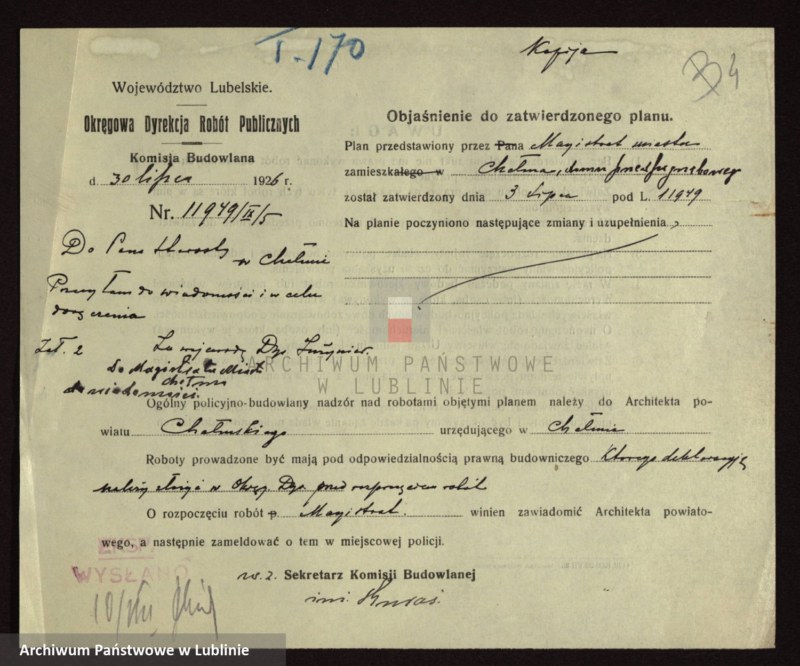 I.170
Kopija
B4
Województwo Lubelskie.
Okręgowa Dyrekcja Robót Publicznych
Komisja Budowlana
d. 30 lipca 1926 r.
Nr. 11949/II/5
Do Pana Starosty
w Chełmie
Przesyłam do wiadomości i w celu
doręczenia
Zał. 2 Za wojewodę Dyr. Inżynier.
do Magistratu Miasta
Chełma
do wiadomości.
Objaśnienie do zatwierdzonego planu.
Plan przedstawiony przez Pana Magistrat miasta
zamieszkałego w Chełma, domu przedpogrzebowego
został zatwierdzony dnia 3 lipca pod L. 11949
Na planie poczyniono następujące zmiany i uzupełnienia,
ARCHIWUM PAŃSTWOWE
W LUBLINIE
Ogólny policyjno-budowlany nadzór nad robotami objętymi planem należy do Architekta po-
wiatu Chełmskiego urzędującego w Chełmie
Roboty prowadzone być mają pod odpowiedzialnością prawną budowniczego którego deklarację
należy złożyć w Okręg. Dyr. przed rozpoczęciem robót
O rozpoczęciu robót p. Magistrat. winien zawiadomić Architekta powiato-
wego, a następnie zameldować o tem w miejscowej policji.
WYSŁANO
w. z. Sekretarz Komisji Budowlanej
inż.
Archiwum Państwowe w Lublinie